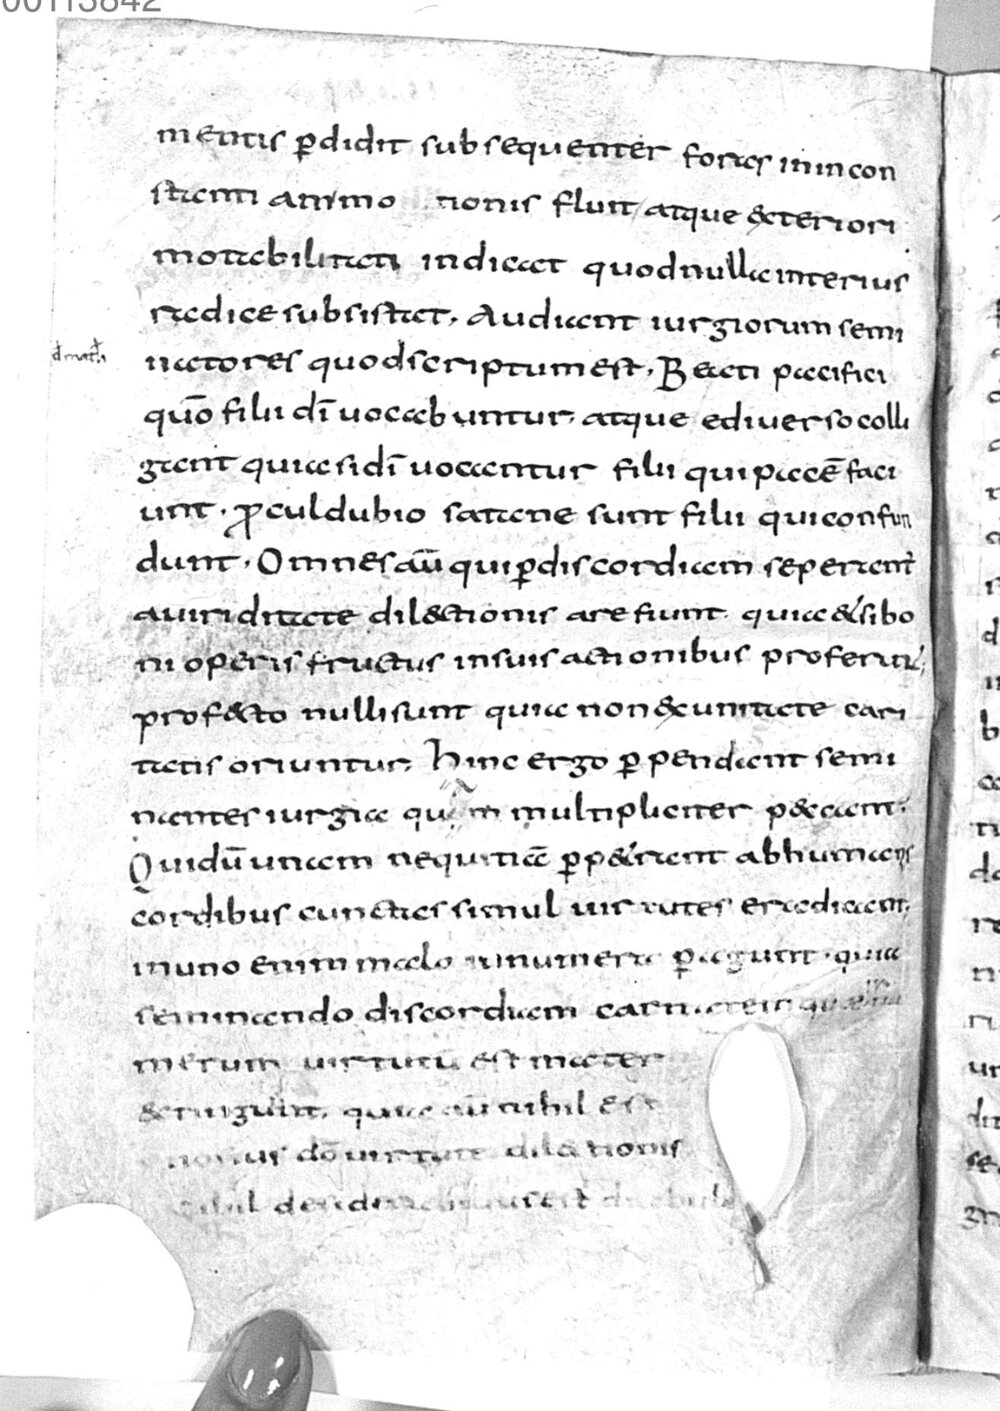 00113842
mentis p̱didit subsequenter foras in incon
stanti animo tionis fluit, atque exteriori
motabilitati indicat quod nulla interius
radice subsistat. Audiant iurgiorum semi
d math
natores quod scriptum est. Beati pacifici
qūo filii dī uocabuntur, atque e diuerso colli
gant quia si dī uocantur filii qui pacē faci
unt. ꝓculdubio satane sunt filii qui confun
dunt. Omnes aū qui p̱ discordiam seperant̄
a uiriditate dilectionis arefiunt. quia & si bo
ni operis fructus in suis actionibus proferunt,
profecto nulli sunt quia non ex unitate cari
tatis oriuntur. hinc ergo p̱pendant semi
nantes iurgia quā multipliciter peccant.
Qui dū unam nequitiā p̱petrant ab humanis
cordibus cunctas simul uirtutes eradicant.
in uno enim malo innumera p̱agunt. quia
seminando discordiam
merum uirtutū est mater
quia aū nihil est
dō uirtute dilectionis
nihil